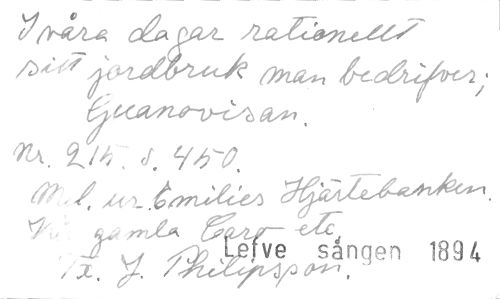 I våra dagar rationellt
sitt jordbruk man bedrifver;
Guanovisan.
Nr. 215. s. 450.
Mel. ur Emilies Hjärtebanken.
gamla Caro etc.
Lefve sången 1894
Tx. J. Philipsson.